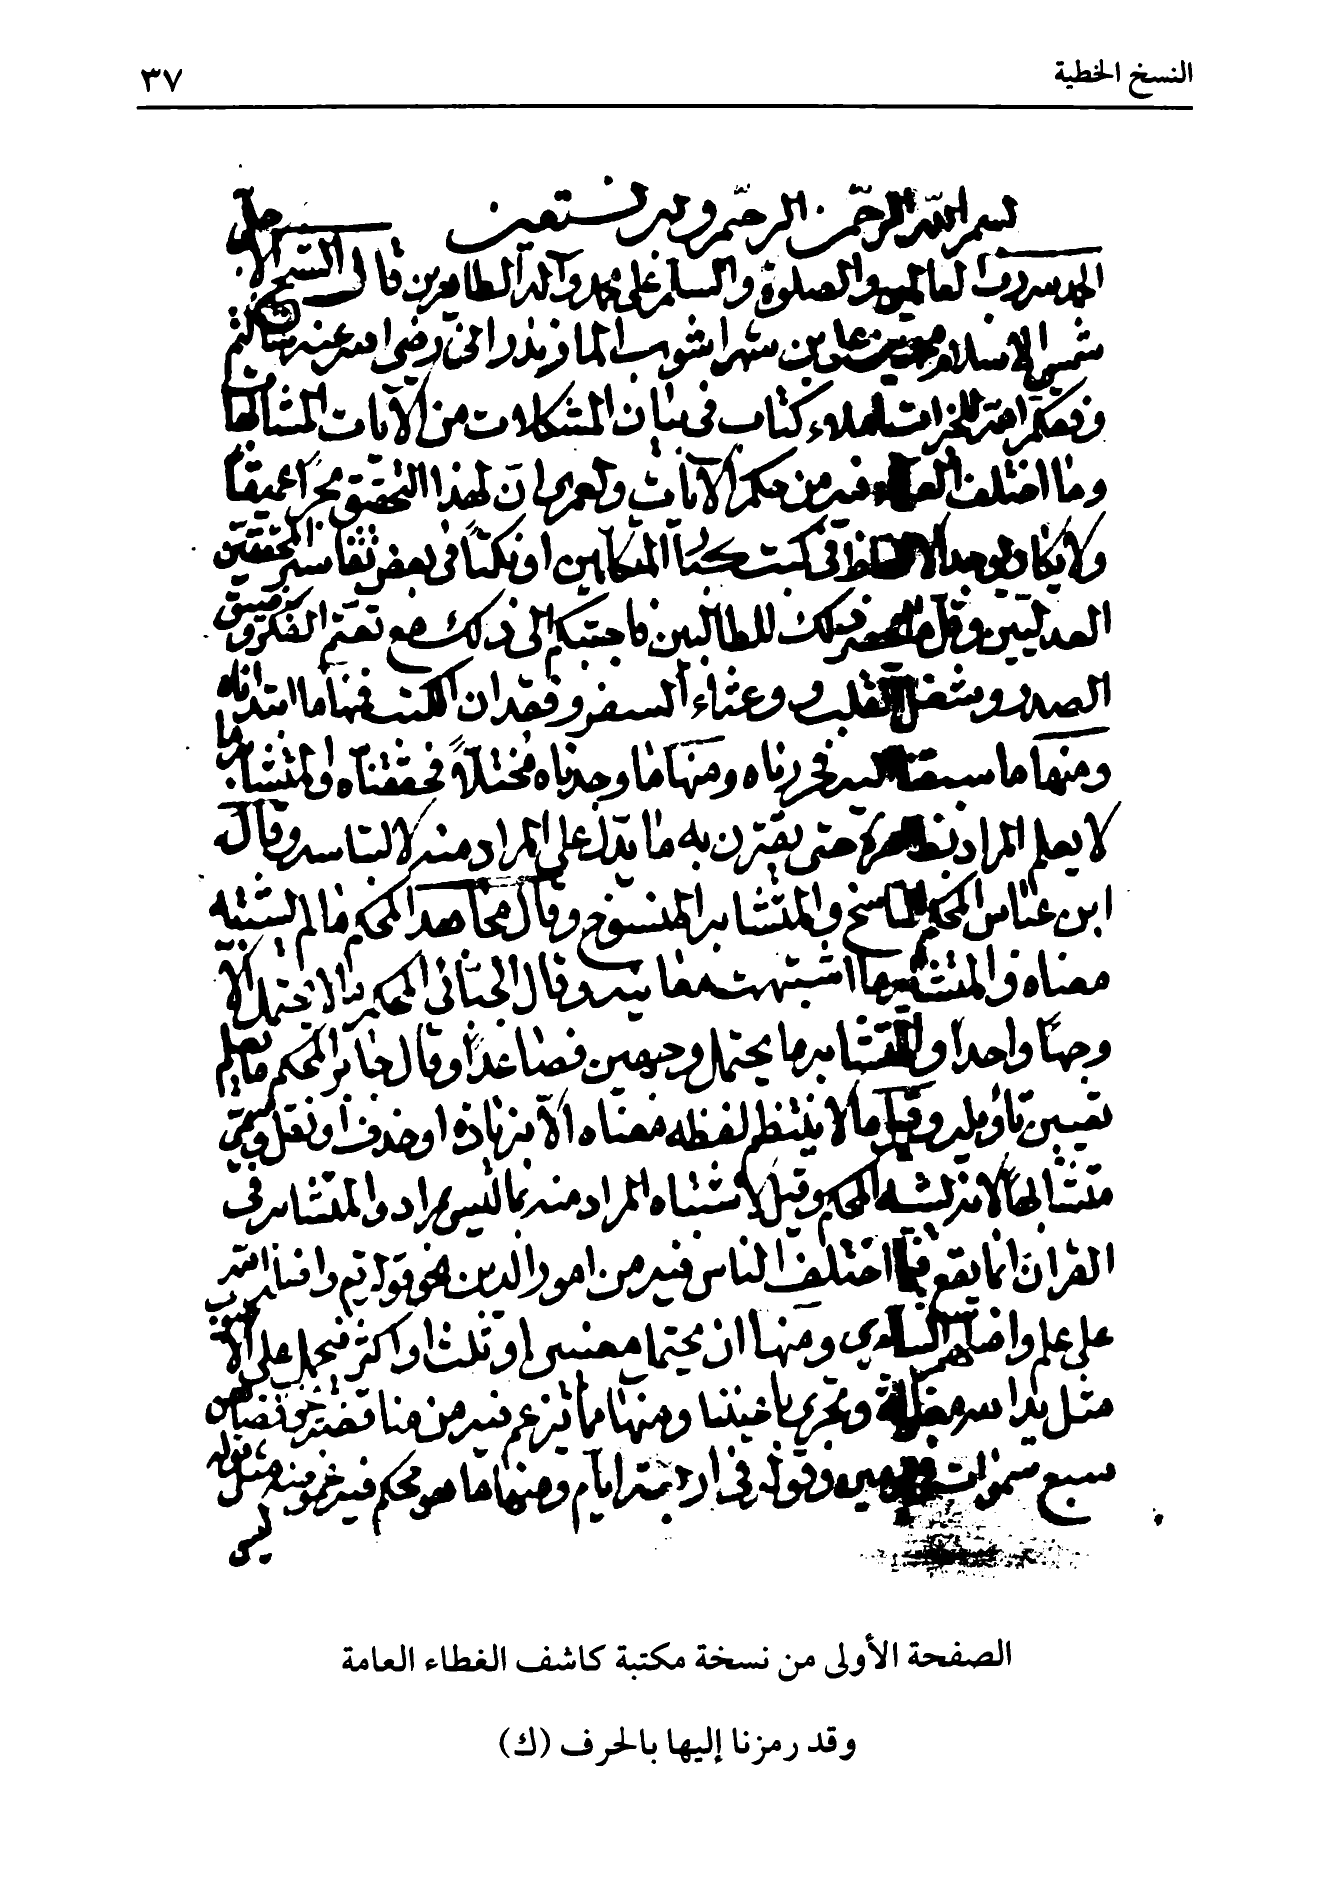 النسخ الخطية
٣٧
بسم الله الرحمن الرحيم وبه نستعين
الحمد لله رب العالمين والصلوة والسلم على محمد وآله الطاهرين قال الشيخ الاجل
شمس الاسلام محمد بن على بن شهراشوب المازندرانى رضى الله عنه سالتم
وفقكم الله للخيرات املاء كتاب فى بيان المشكلات من الآيات المتشابهات
وما اختلف العلماء فيه من حكم الآيات ولعمرى ان لهذا التحقيق بحرا عميقا
ولا يكاد يوجد الا الفاظ فى كتب كبار المتكلمين او نكتا فى بعض تفاسير المحققين
العدليين وقل ما فصل ذلك للطالبين فاجبتكم الى ذلك مع تقسم الفكر وضيق
الصدر وشغل القلب ووعثاء السفر وفقدان الكتب فمنها ما ابتدأناه
ومنها ما سبقنا اليه فحررناه ومنها ما وجدناه مختلا فحققناه والمتشابه ما
لا يعلم المراد بظاهره حتى يقترن به ما يدل على المراد منه لالتباسه وقال
ابن عباس المحكم الناسخ والمتشابه المنسوخ وقال مجاهد المحكم ما لم يشتبه
معناه والمتشابه ما اشتبهت معانيه وقال الجبائى المحكم ما لا يحتمل الا
وجها واحدا والمتشابه ما يحتمل وجهين فصاعدا وقال جابر المحكم ما يعلم
تعيين تاويله وقيل ما لا ينتظم لفظه معناه الا بزيادة او حذف او نقل وسمى
متشابها لانه يشبه المحكم وقيل لاشتباه المراد منه بما ليس بمراد والمتشابه فى
القران انما يقع فيما اختلف الناس فيه من امور الدين نحو قوله تع واضله الله
على علم واضلهم السامرى ومنها ان يحتمل معنيين او ثلث او اكثر فيحمل على الاصوب
مثل يد الله مغلولة وتجرى باعيننا ومنها ما يزعم فيه من مناقضة نحو فقضاهن
سبع سموات فى يومين وقوله فى اربعة ايام ومنها ما هو محكم فيه نحو منه مثل قوله
ليس
الصفحة الأولى من نسخة مكتبة كاشف الغطاء العامة
وقد رمزنا إليها بالحرف (ك)